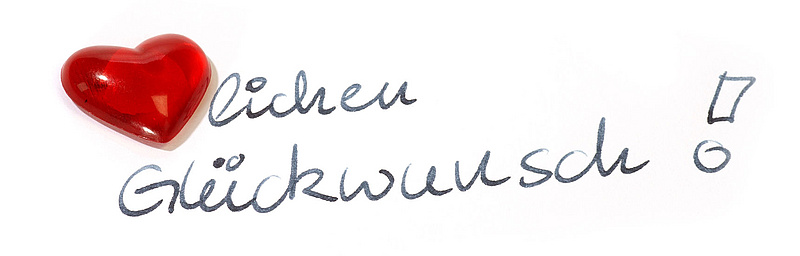 lichen
Glückwunsch!